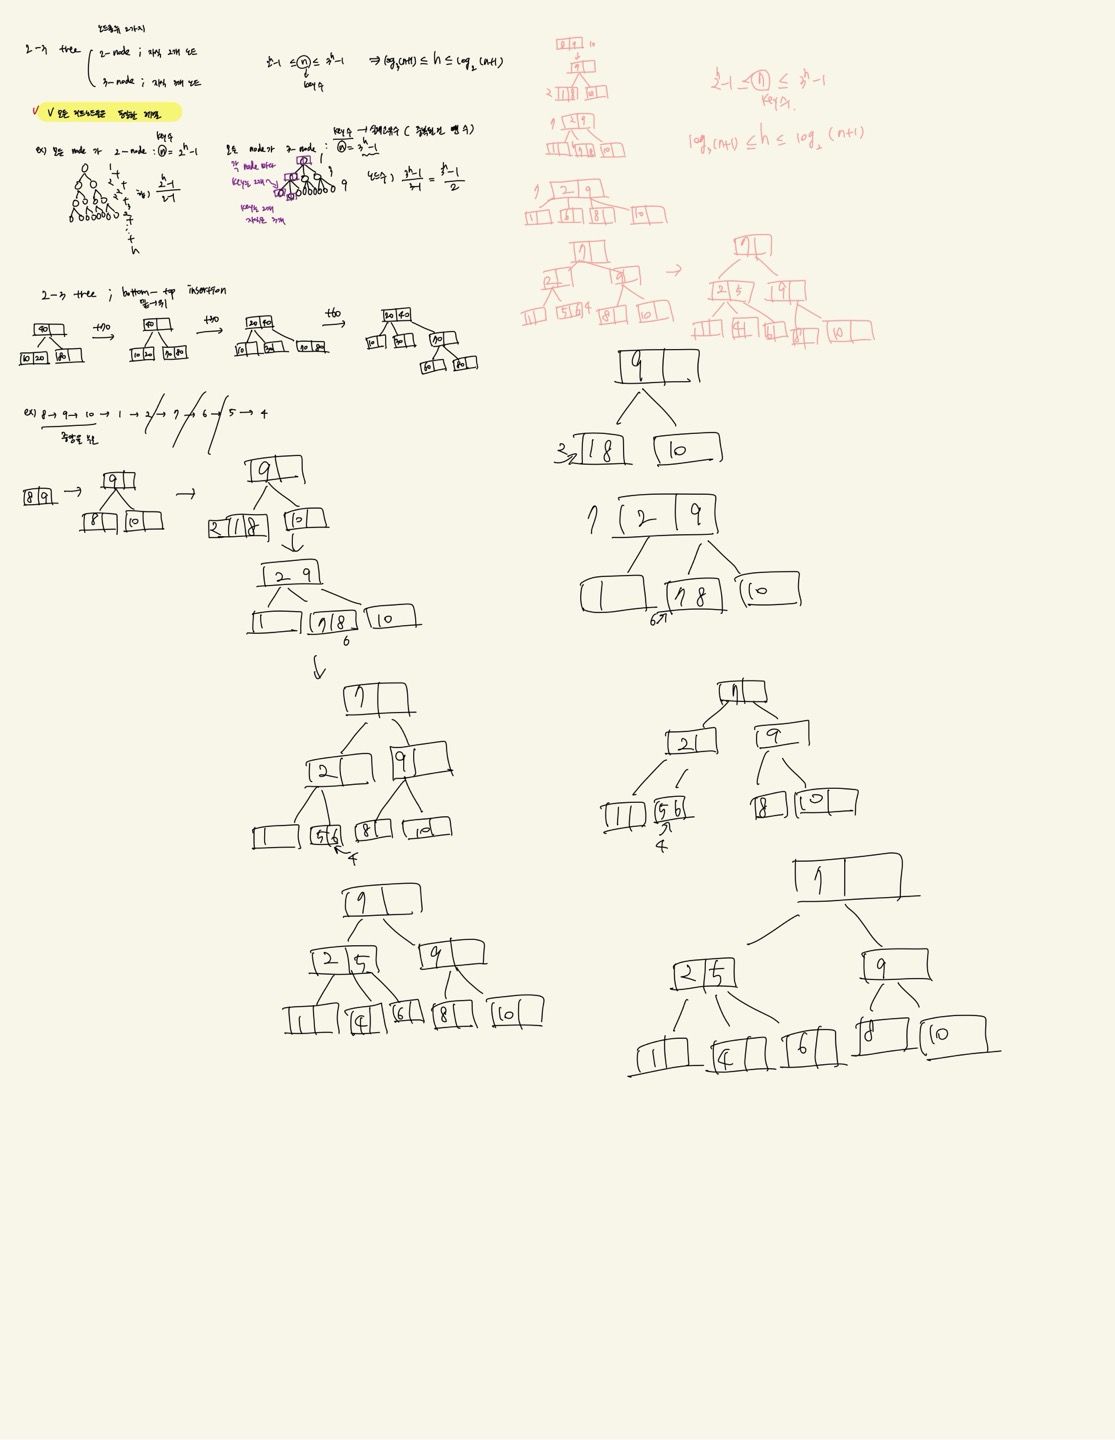 노드종류 2가지
2-3 tree
2-node ; 자식 2개 노드
3-node ; 자식 3개 노드
2^h-1 ≤ n ≤ 3^h-1 ⇒ log₃(n+1) ≤ h ≤ log₂(n+1)
key수
✓ ∨ 모든 리프노드들은 동일한 레벨
ex) 모든 node가 2-node : n = 2^h-1
key수
모든 node가 3-node : n = 3^h-1
각 node마다
key는 2개
key는 2개
자식은 3개
노드수) 3^h-1/3-1 = 3^h-1/2
2-3 tree ; bottom-top insertion
40
10 20 80
+70
40
10 20 70 80
+30
20 40
10 30 70 80
+60
20 40
10 30 70
60 80
ex) 8 → 9 → 10 → 1 → 2 → 7 → 6 → 5 → 4
8 9 →
9
8 10
→
9
2 1 8 10
2 9
1 7 8 10
6
7
2 9
1 5 6 8 10
4
7
2 5 9
1 4 6 8 10
8 9 10
9
2 1 8 10
7 2 9
1 7 8 10
7 2 9
1 6 8 10
7
2 9
1 5 6 4 8 10
→
7
2 5 9
1 4 6 8 10
2^h-1 ≤ n ≤ 3^h-1
key수
log₃(n+1) ≤ h ≤ log₂(n+1)
9
1 8 10
7 2 9
1 7 8 10
6
7
2 9
1 5 6 8 10
4
7
2 5 9
1 4 6 8 10